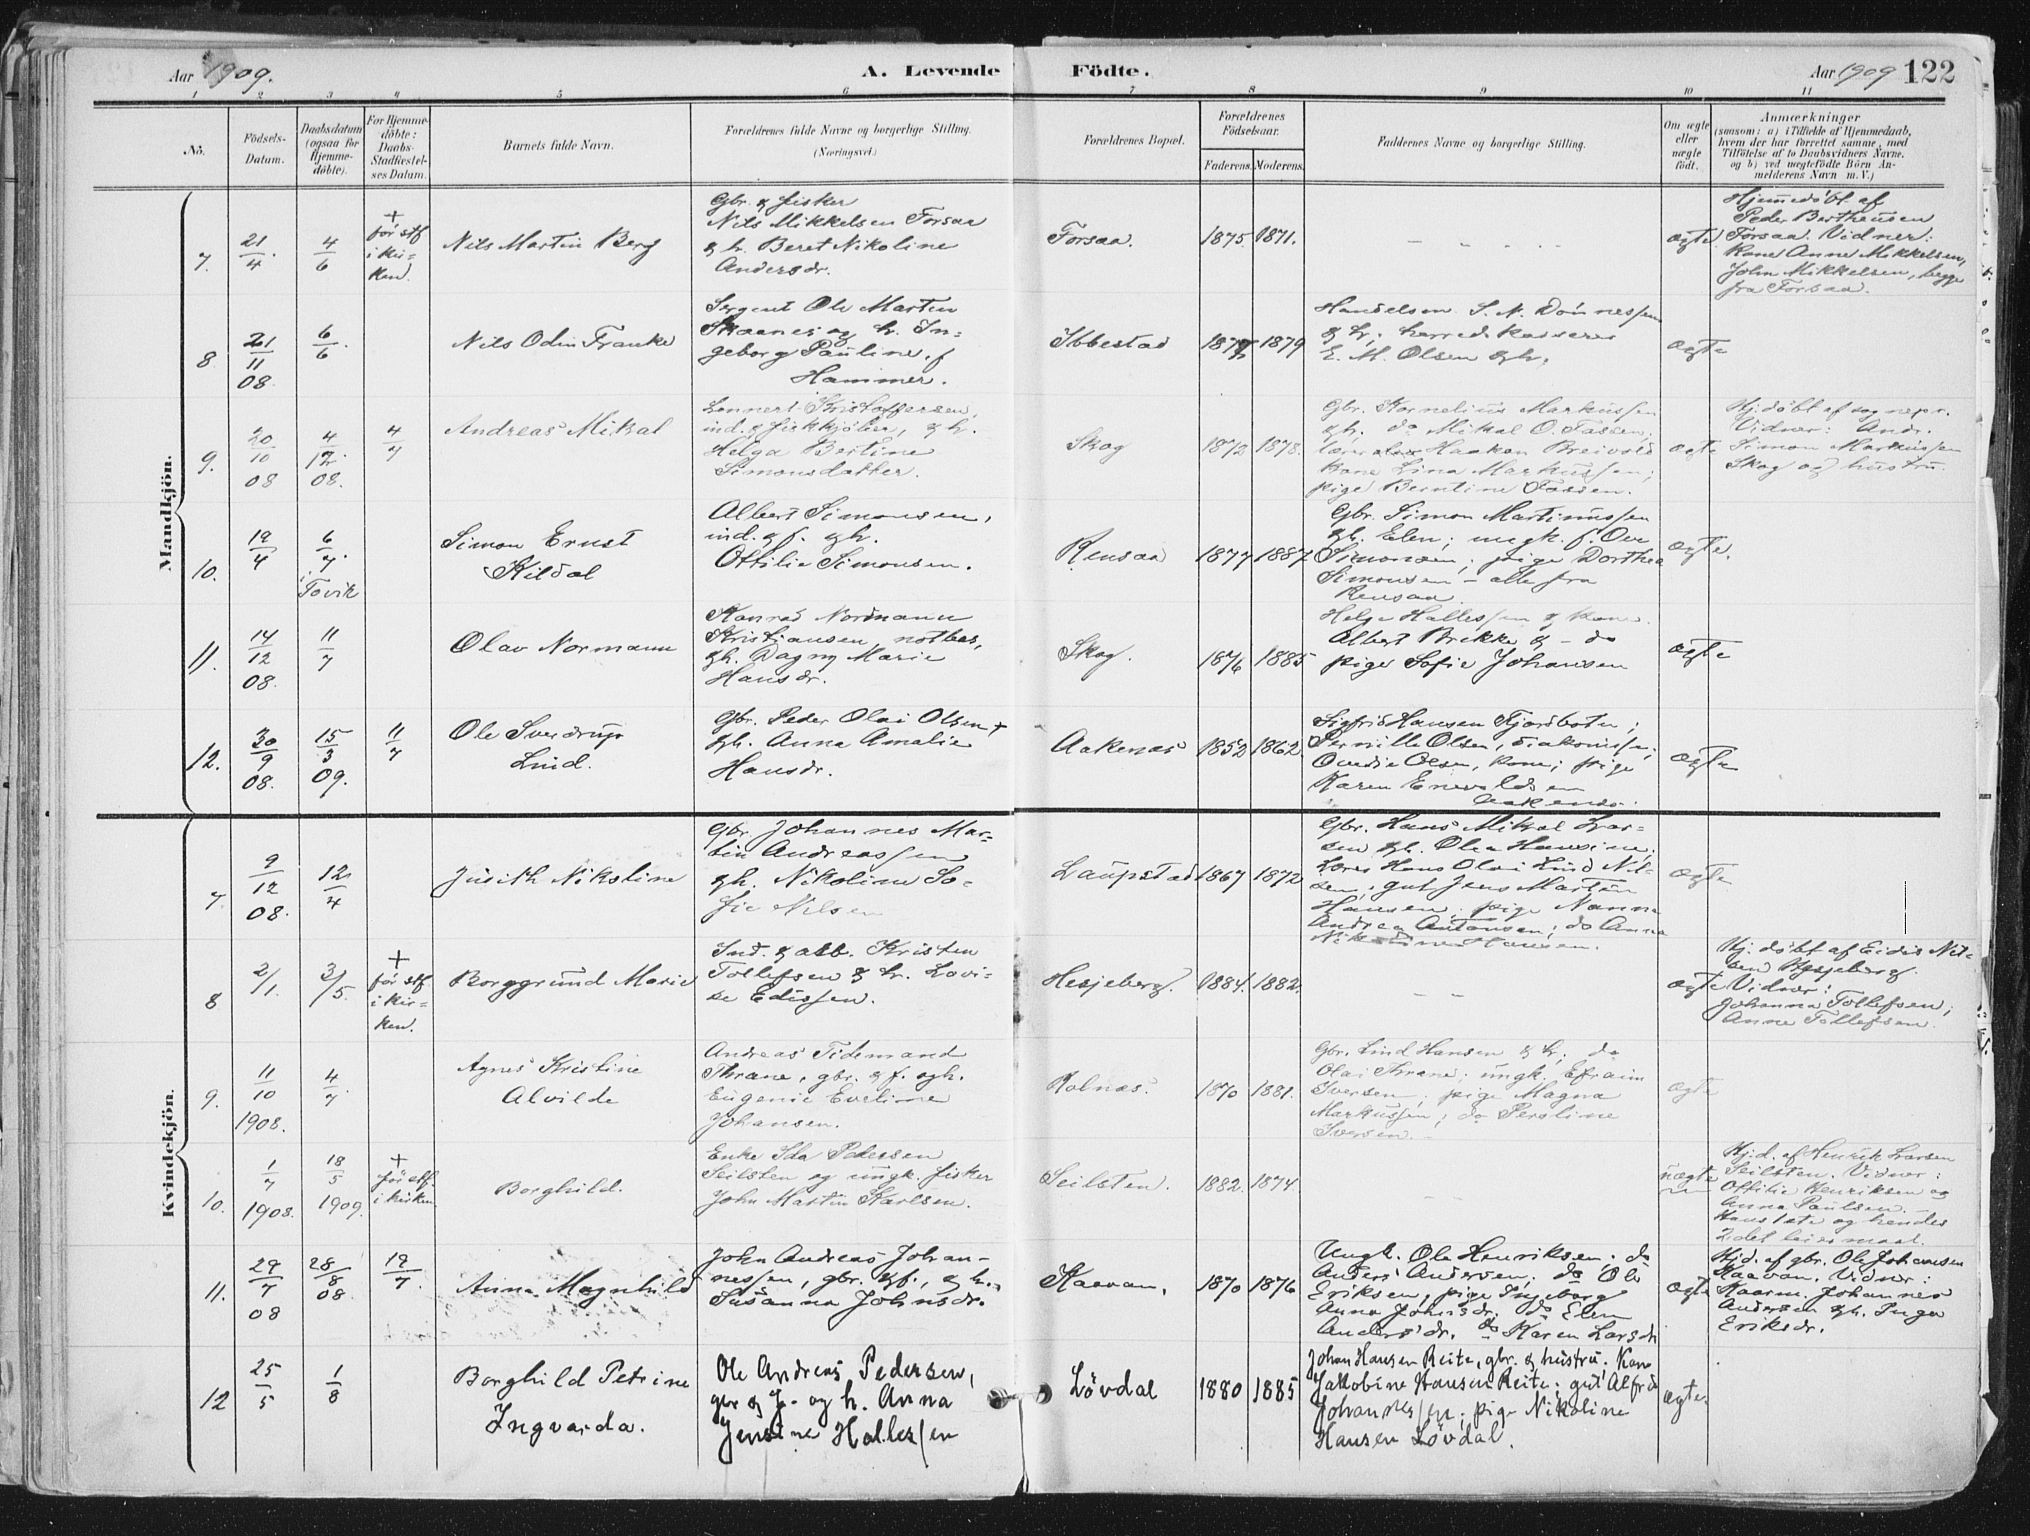 Aar 1909.
A. Levende
Födte.
Aar 1909
122
1 2 3 4 5 6 7 8 9 10 11
No.
Födsels-
Datum.
Daabsdatum
(ogsaa for
Hjemme-
döbte).
For Hjemme-
döbte:
Daabs-
Stadfæstel-
ses Datum.
Barnets fulde Navn.
Forældrenes fulde Navne og borgerlige Stilling.
(Næringsvei.)
Forældrenes Bopæl.
Forældrenes
Födselsaar.
Faderens.
Moderens.
Faddernes Navne og borgerlige Stilling.
Om ægte
eller
uægte
födt.
Anmærkninger
(saasom: a) i Tilfælde af Hjemmedaab,
hvem der har forrettet samme, med
Tilföielse af to Daabsvidners Navne,
og b) ved uegtefödte Börn An-
melderens Navn m. V.)
Mandkjön.
7.
21/4
4/6
+
för stf
i kir-
ken.
Nils Martin Berg
Gbr. & fisker
Nils Mikkelsen Forsaa
& h. Beret Nikoline
Andersdr.
Forsaa.
1875
1871.
ægte
Hjemmedöbt af
Peder Bertheusen
Forsaa. Vidner:
Kone Anne Mikkelsen,
John Mikkelsen, begge
fra Forsaa.
8
21/11
08
6/6
Nils Odin Franke
Sergent Ole Martin
Skaanes og h. In-
geborg Pauline f
Hammer.
Ibbestad
1877
1879
Handelsm. S. N. Dönnessen
& h; herredskasserer
E. M. Olsen & h.
ægte
9.
20/10
08
4/12
08.
4/7
Andreas Mikal
Lennert Kristoffersen,
ind. & fiskkjöber, & h.
Helga Bertine
Simonsdatter.
Skog
1872
1878.
Gbr. Kornelius Markussen
& h. do Mikal O. Tassen,
lærer Haakon Breivold
kone Lina Markussen;
pige Berntine Tassen.
ægte
Hj.döbt af sognepr.
Vidner: Andr.
Simon Markussen
Skog og hustru.
10.
19/4
6/7
i
Tovik
Simon Ernst
Kildal
Albert Simonsen,
ind. & f. & h.
Ottilie Simonsen.
Rensaa
1877
1887
Gbr. Simon Martinussen
& h. Elen; ungk. f. Ove
Simonsen; pige Dorthea
Simonsen – alle fra
Rensaa
ægte.
11.
14/12
08.
11/7
Olav Normann
Konrad Normann
Kristiansen, notbas,
& h. Dagny Marie
Hansdr.
Skog.
1876
1885
Helge Hallessen & kone.
Albert Brekke & – do
pige Sofie Johansen
ægte
12.
30/9
08.
15/3
09.
11/7
Ole Sverdrup
Lind.
Gbr. Peder Olai Olsen +
& h. Anna Amalie
Hansdr.
Aakenes
1852
1862
Sigfrid Hansen Fjordbotn;
Pernille Olsen, diakonisse;
Ovedie Olsen, kone; pige
Karen Enevoldsen
Aakenes.
ægte
Kvindekjön.
7
9/12
08.
12/4
Judith Nikoline
Gbr. Johannes Mar-
tin Andreassen
& h. Nikoline So-
fie Nilsen
Laupstad
1867
1872
Gbr. Hans Mikal Lar-
sen & h. Olea Hansine;
Lærer Hans Olai Lind Nil-
sen, gut Jens Martin
Hansen, pige Nanna
Andrea Antonsen; do Anna
ægte
8
2/1.
3/5.
+
för stf
i kir-
ken.
Borggrund Marie
Ind. & arb. Kristen
Tollefsen & h. Lovi-
se Edissen.
Hesjeberg.
1884.
1882.
ægte
Hj. döbt af Eidis Nil-
sen Hesjeberg.
Vidner:
Johanna Tollefsen;
Anne Tollefsen.
9.
11/10
1908.
4/7
Agnes Kristine
Alvilde
Andreas Tidemand
Thrane, gbr. & f. og h.
Eugenie Eveline
Johansen.
Rolnæs.
1870
1881.
Gbr. Lind Hansen & h; do
Olai Thrane; ungk. Efraim
Iversen, pige Magna
Markussen; do Persline
Iversen. –
ægte
10.
1/7
1908.
18/5
1909.
+
för stf
i kirken
Borghild.
Enke Ida Pedersen
Seilsten og ungk. fisker
John Martin Karlsen.
Seilsten.
1882.
1874.
uægte
Hj.d. af Henrik Larsen
Seilsten. Vidner:
Offilie Henriksen og
Anna Paulsen. –
Hans 1ste og hendes
2det leiermaal.
11.
29/7
08
28/8
08.
12/7.
Anna Magnhild
John Andreas Johan-
nessen, gbr. & f., & h.
Susanna Johnsdr.
Kaavan,
1870
1876
Ungk. Ole Henriksen; do
Anders Andersen; do Ole
Eriksen, pige Ingeborg
Anna Johnsdr. do Elen
Andersdr. do Karen Larsdr
ægte
Hjd. af gbr. Ole Johansen
Kaavan. Vidner:
Kaarm. Johannes
Andersen & h. Inga
Eriksdr.
12
25/5
1/8
Borghild Petrine
Ingvarda.
Ole Andreas Pedersen,
gbr & f. og h. Anna
Jensine Hallessen
Lövdal
1880
1885
Johan Hansen Reite, gbr. & hustru. Kone
Jakobine Hansen Reite; gut Alfred
Johannessen; pige Nikoline
Hansen Lövdal.
ægte